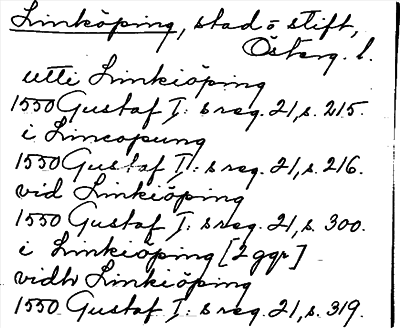 Linköping, stad o stift,
Österg. l.
utti Linkiöping
1550 Gustaf I:s reg. 21, s. 215.
i Lincopung
1550 Gustaf I:s reg. 21, s. 216.
vid Linkiöping
1550 Gustaf I:s reg. 21, s. 300.
i Linkiöping [2 ggr]
vidh Linkiöping
1550 Gustaf I:s reg. 21, s. 319.